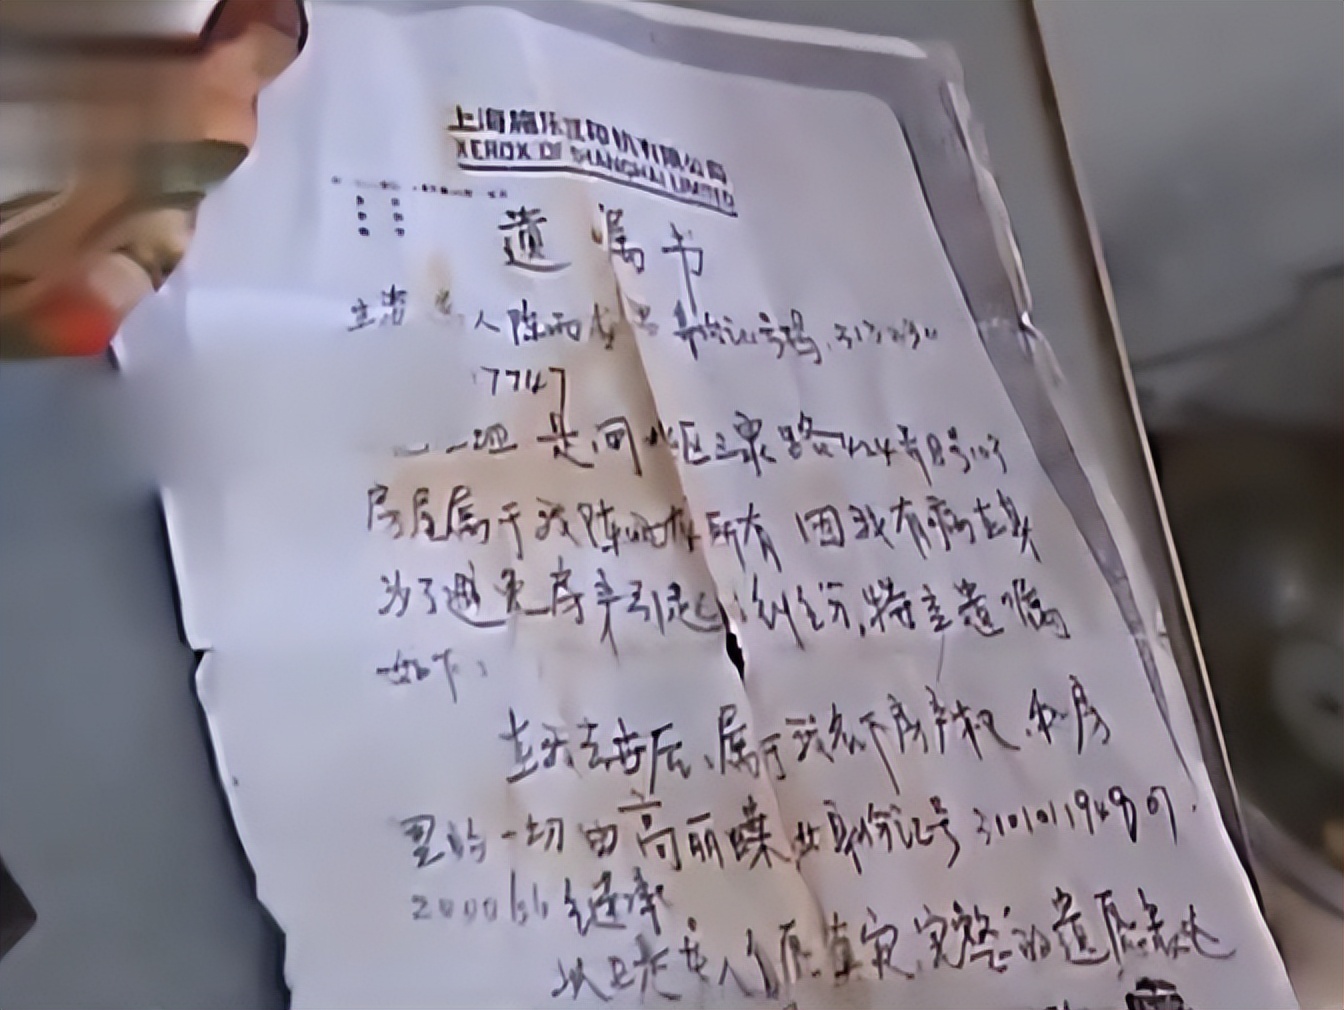 上海施乐复印机有限公司
XEROX OF SHANGHAI LIMITED
遗嘱书
立遗嘱人陈雨 身份证号码
7747
是闸北区 路424弄8号103
房屋属于我陈雨 所有 因我有病在身
为了避免房产引起纠纷,特立遗嘱
如下:
在我去世后、属于我名下房产权、和房
里的一切由高丽 女身份证号310101194907
继承
以上是本人自愿真实,完整的遗愿表达